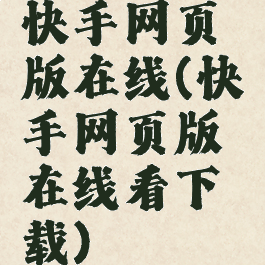 快手网页
版在线(快
手网页版
在线看下
载)